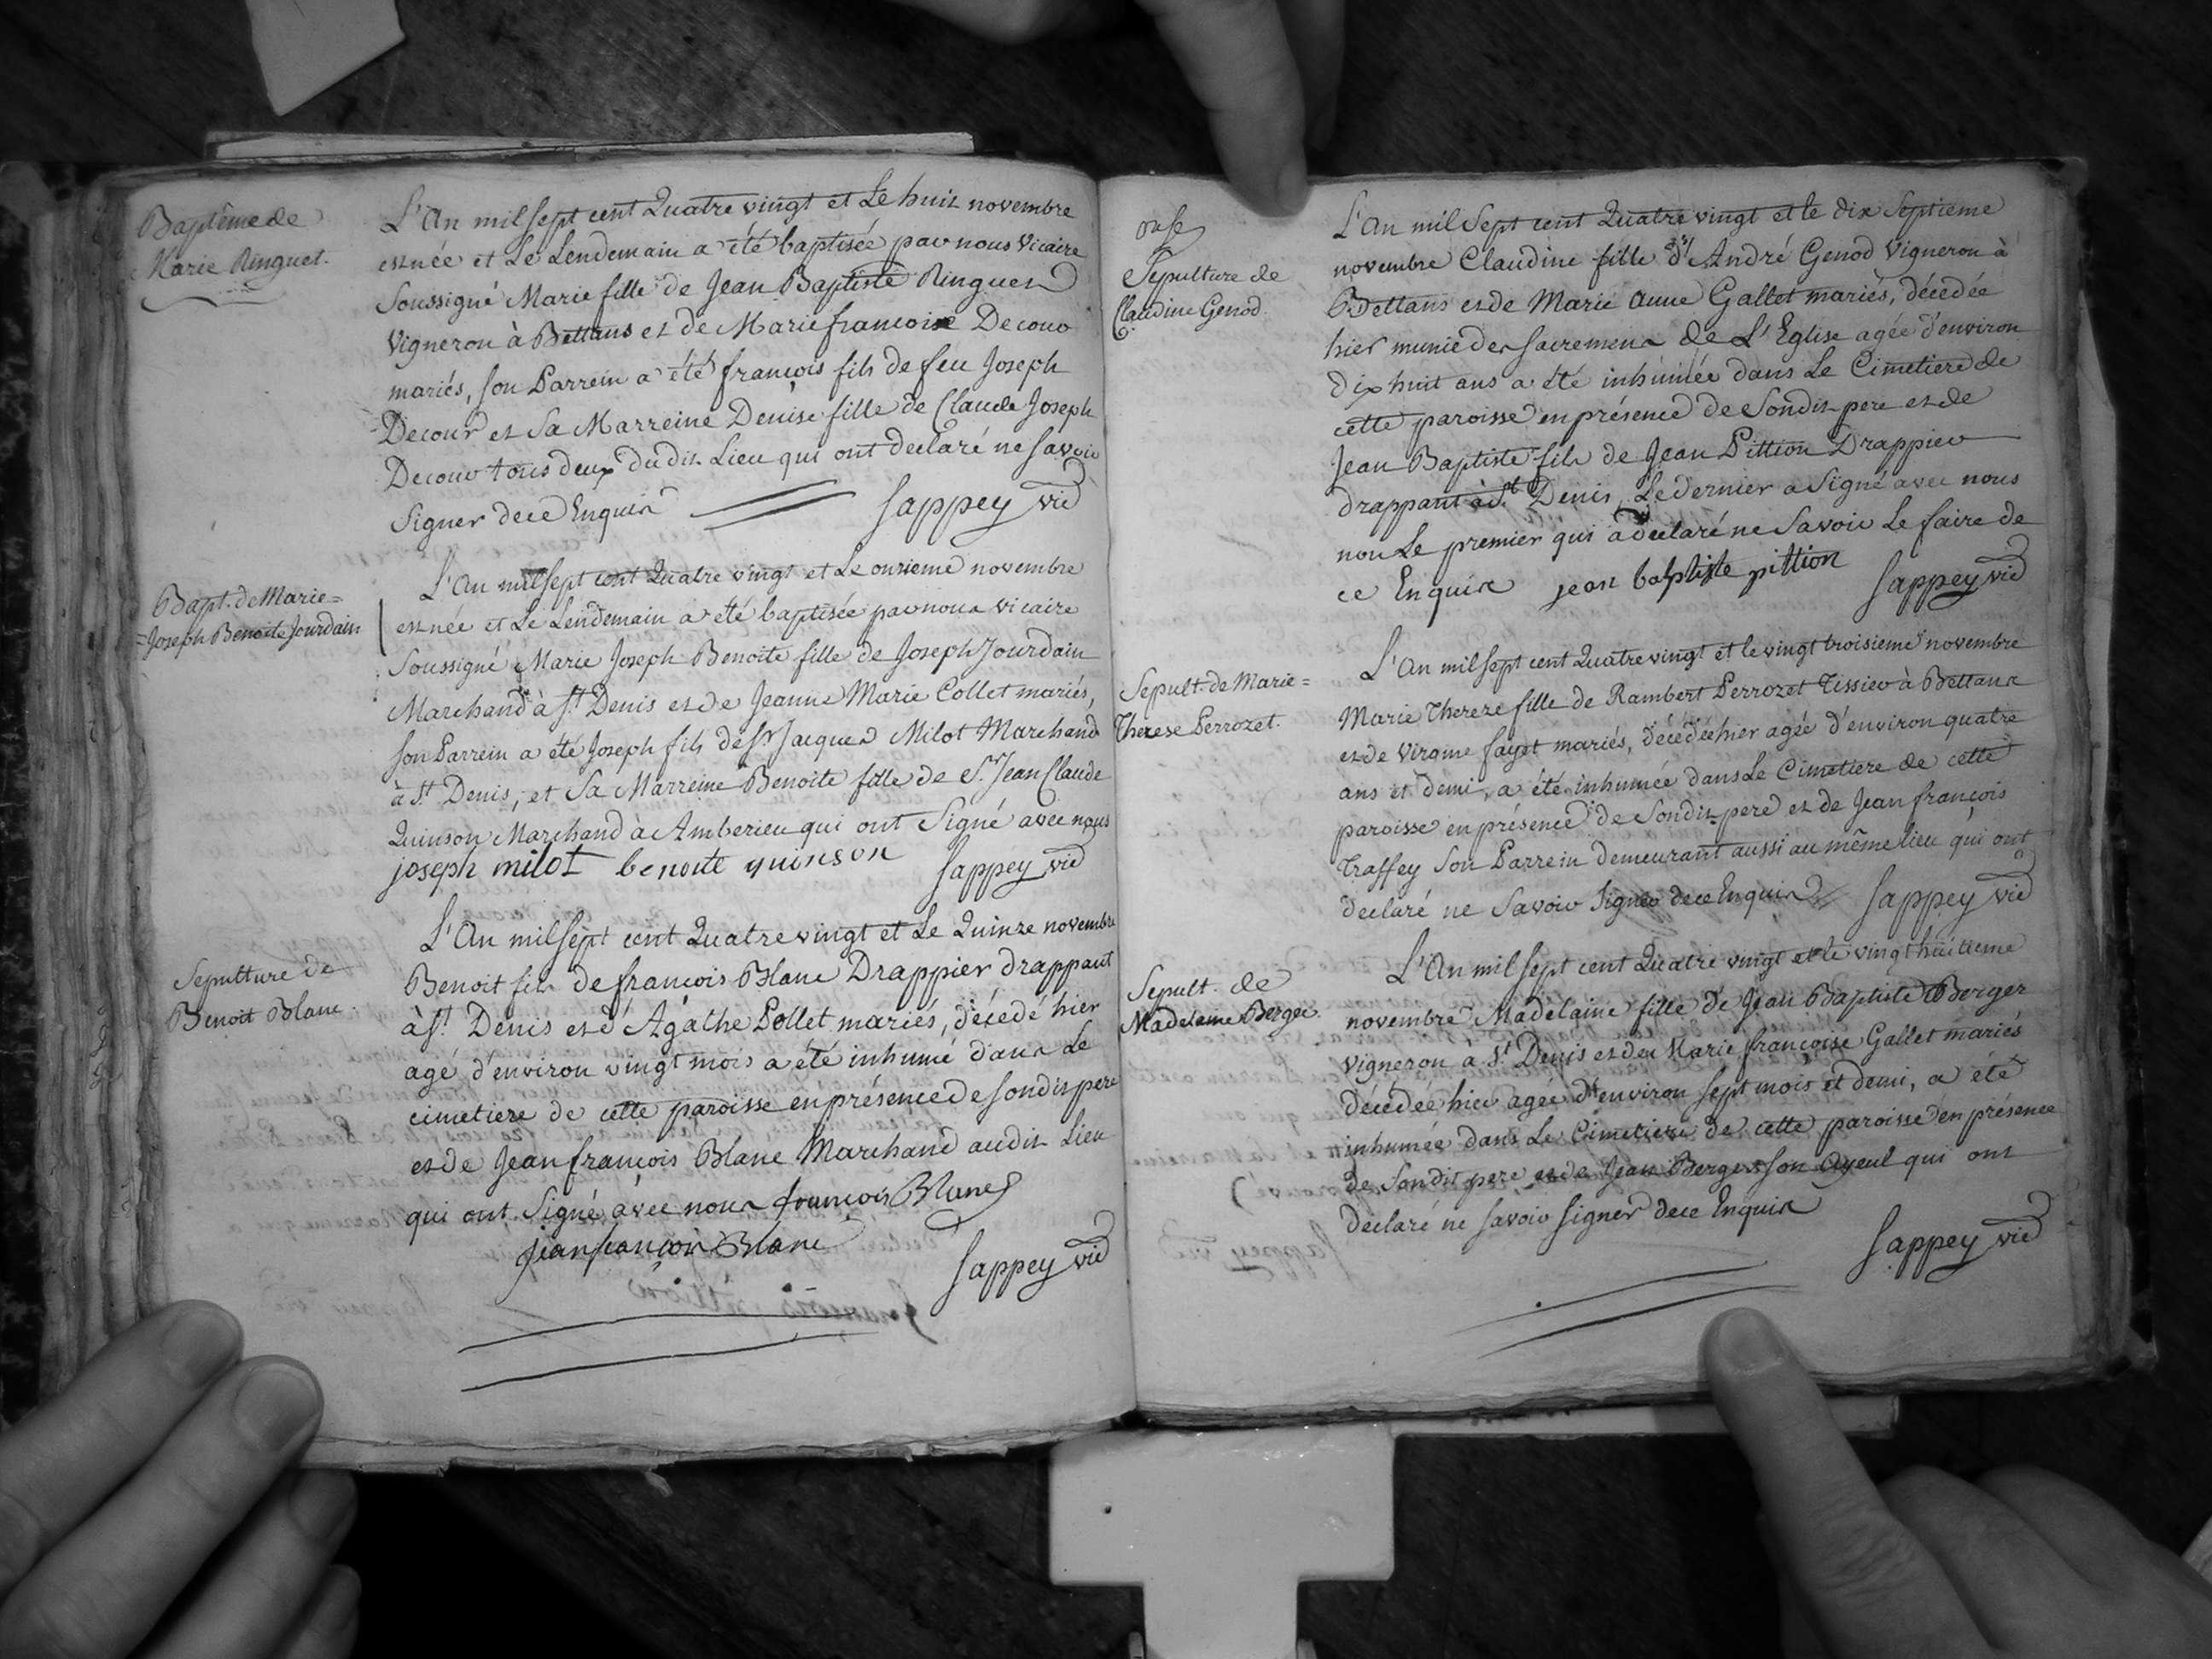 Baptême de
Marie Ringuet.
L'An mil sept cent Quatre vingt et Le huit novembre
est née et Le Lendemain a été baptisée par nous Vicaire
Soussigné Marie fille de Jean Baptiste Ringuet
Vigneron à Bettans et de Marie francoise Decour
mariés, son Parrein a été françois fils de feu Joseph
Decour et Sa Marreine Denise fille de Claude Joseph
Decour tous deux dudit Lieu qui ont declaré ne savoir
Signer de ce Enquis Sappey vic
Bapt. de Marie=
=Joseph Benoite Jourdain
L'An mil sept cent Quatre vingt et Le onzieme novembre
est née et Le Lendemain a été baptisée par nous vicaire
Soussigné Marie Joseph Benoite fille de Joseph Jourdain
Marchand à St. Denis et de Jeanne Marie Collet mariés,
son Parrein a été Joseph fils de Sr Jacques Milot Marchand
à St Denis, et Sa Marreine Benoite fille de Sr. Jean Claude
Quinson Marchand à Amberieu qui ont Signé avec nous
joseph milot benoite quinson Sappey vic
Sepulture de
Benoit Blanc.
L'An mil sept cent Quatre vingt et Le Quinze novembre
Benoit fils de francois Blanc Drappier drappant
à St. Denis et d'Agathe Pollet mariés, décedé hier
agé d'environ vingt mois a été inhumé dans Le
cimetiere de cette paroisse en présence de son dit pere
et de Jean françois Blanc Marchand audit Lieu
qui ont Signé avec nous francois Blanc
jean françois Blanc
Sappey vic
Sepulture de
Claudine Genod.
L'An mil Sept cent Quatre vingt et le dix Septieme
novembre Claudine fille d'André Genod Vigneron à
Bettans et de Marie Anne Gallet mariés, décedée
hier munie des sacremens de L'Eglise agée d'environ
dix huit ans a été inhumée dans Le Cimetiere de
cette paroisse en présence de Sondit pere et de
Jean Baptiste fils de Jean Pittion Drappier
drappant à St Denis, Le dernier a Signé avec nous
non Le premier qui a declaré ne Savoir Le faire de
ce Enquis jean baptiste pittion Sappey vic
Sepult. de Marie=
Therese Perrozet.
L'An mil sept cent Quatre vingt et le vingt troisieme novembre
Marie Thereze fille de Rambert Perrozet Tissier à Bettans
et de Virgine fayet mariés, décédée hier agée d'environ quatre
ans et demi, a été inhumée dans Le Cimetiere de cette
paroisse en présence de Sondit pere et de Jean françois
Traffey Son Parrein demeurant aussi au même lieu qui ont
declaré ne Savoir Signer de ce Enquis Sappey vic
Sepult. de
Madeleine Berger.
L'An mil sept cent Quatre vingt et le vingt huitieme
novembre Madelaine fille de Jean Baptiste Berger
vigneron à St Denis et de Marie françoise Gallet mariés
décédée hier agée d'environ sept mois et demi, a été
inhumée dans Le Cimetiere de cette paroisse en présence
de Sondit pere et de Jean Berger son Ayeul qui ont
declaré ne savoir signer de ce Enquis
Sappey vic